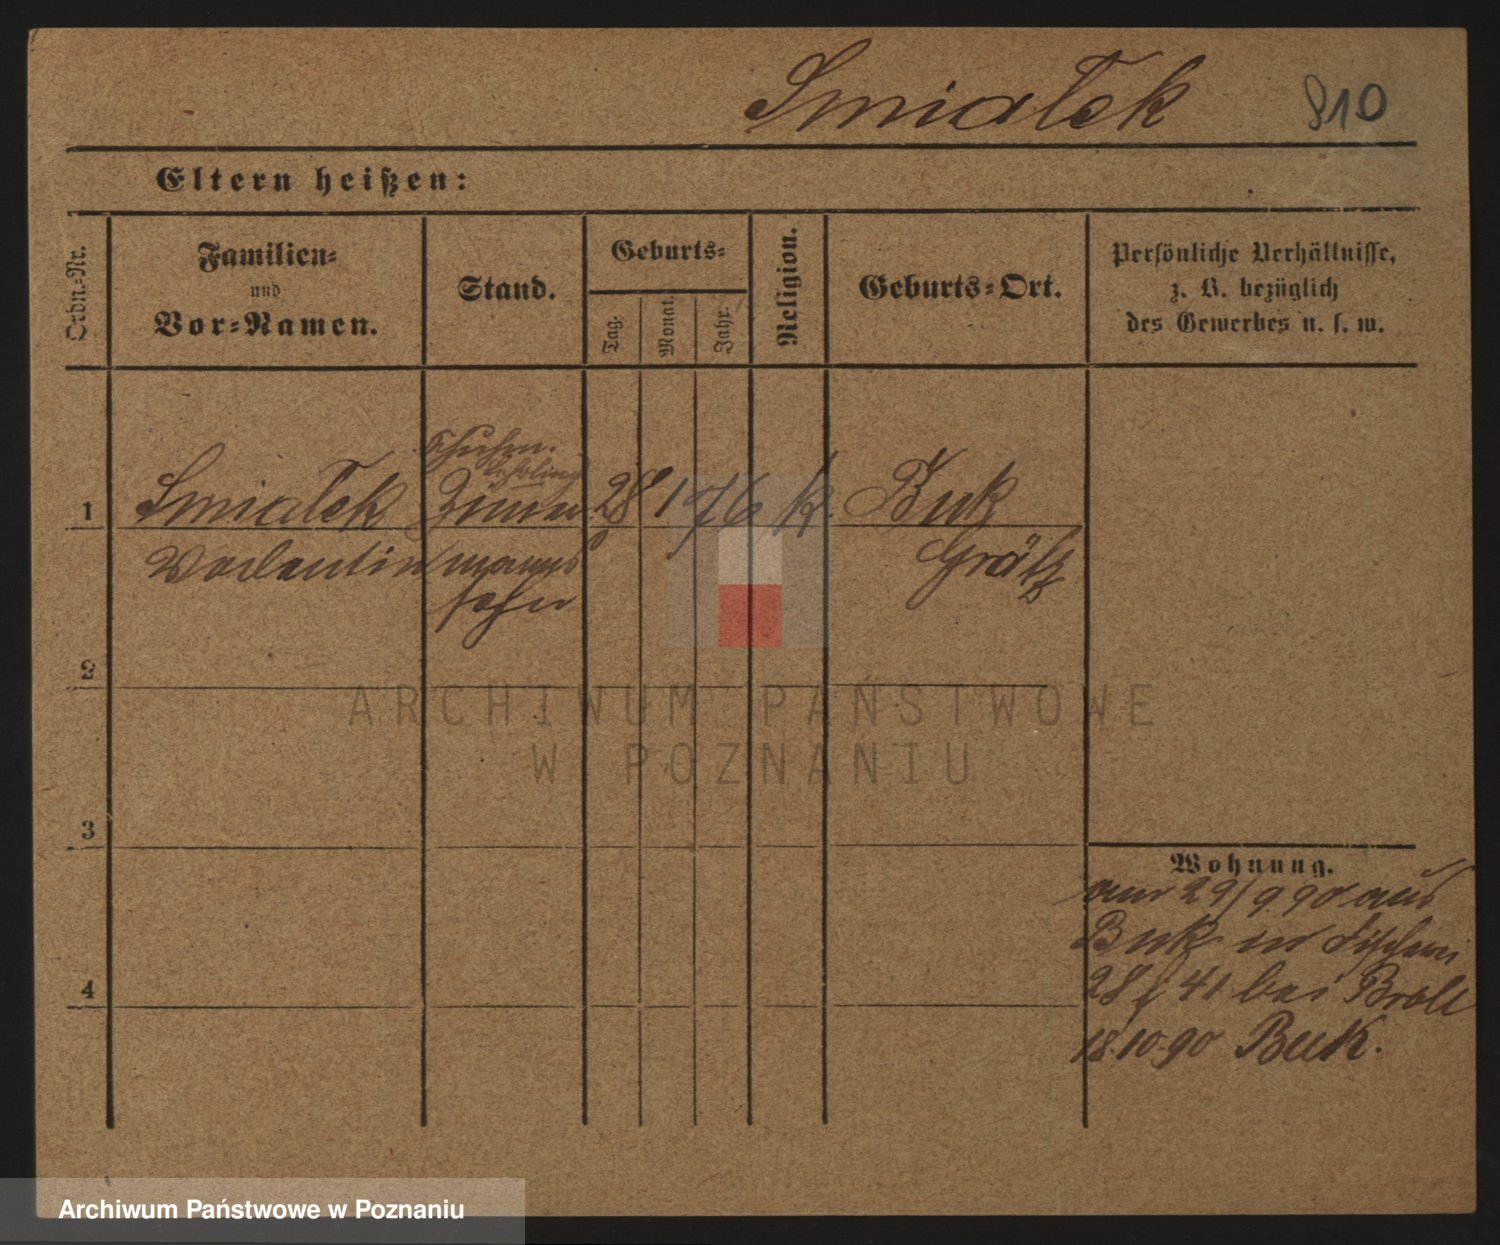 Smiałek 910
Eltern heißen:
Ordn.-Nr.
Familien-
und
Vor-Namen.
Stand.
Geburts-
Tag.
Monat.
Jahr.
Religion.
Geburts-Ort.
Persönliche Verhältnisse,
z. B. bezüglich
des Gewerbes u. s. w.
lehrling
1 Smiałek Zimmer 28 1 76 k. Buk
Valentin manns Grätz
sohn
2
3
4
Wohnung.
am 29/9 90 aus
Buk in
41 bei
18.10.90 Buk.
ARCHIWUM PAŃSTWOWE
W POZNANIU
Archiwum Państwowe w Poznaniu